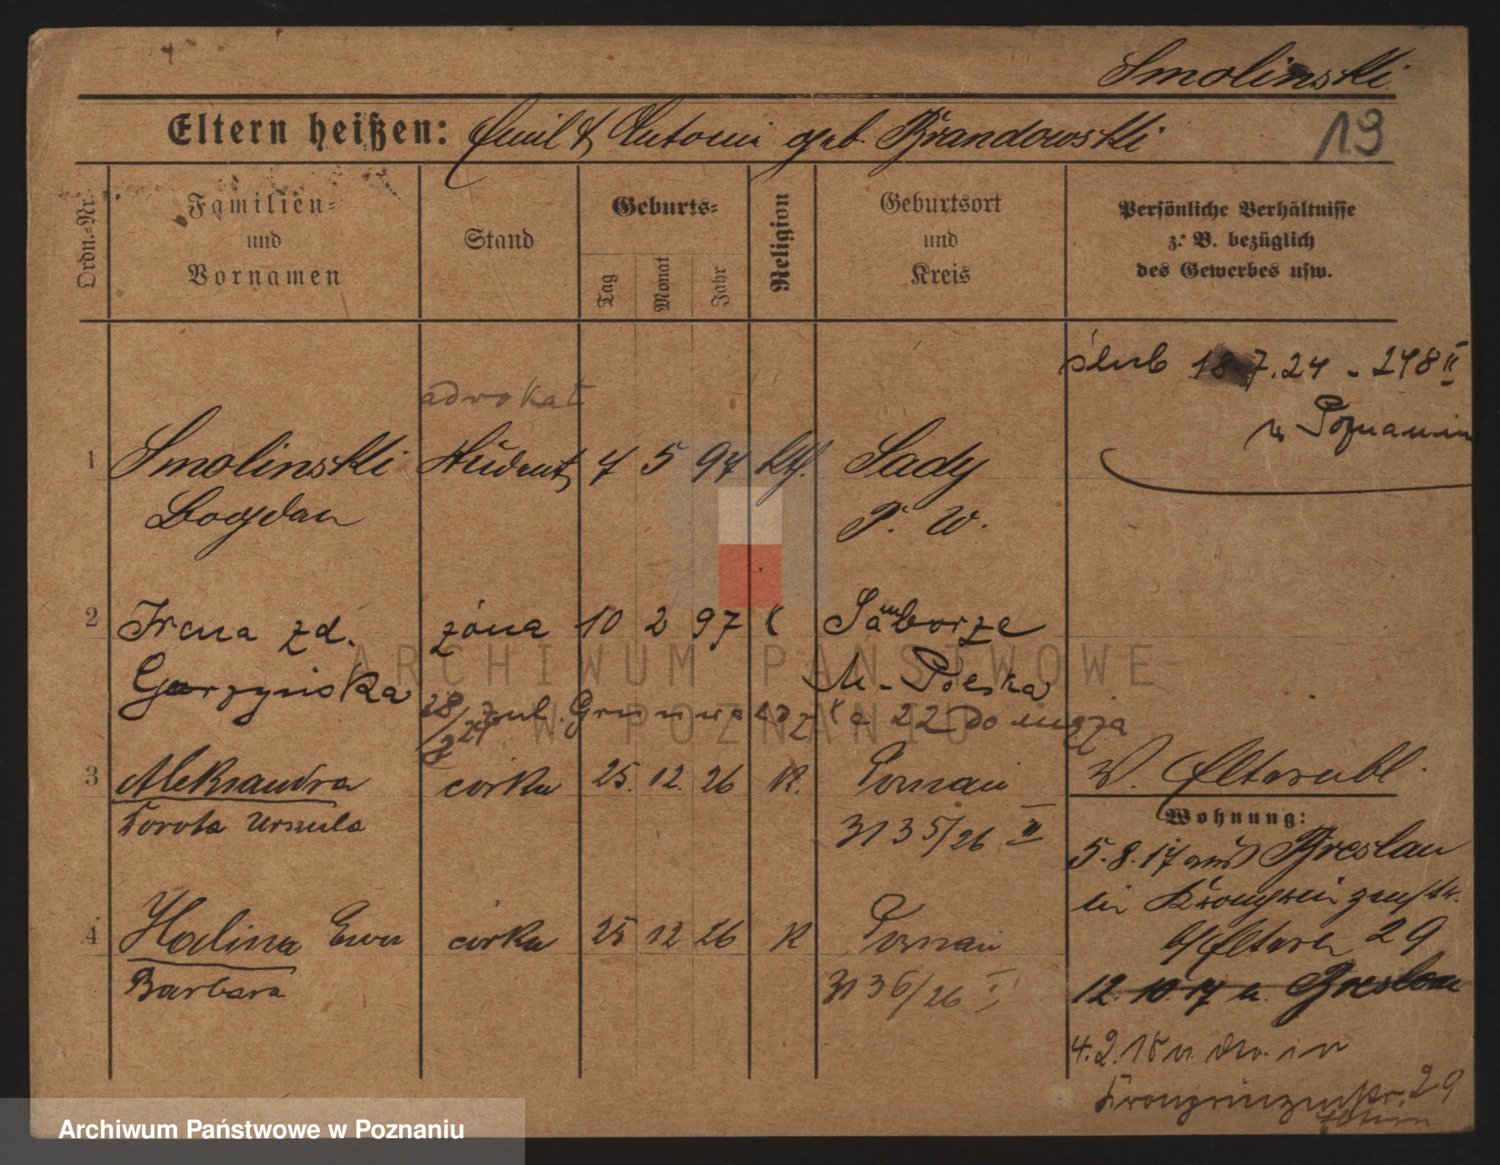 Smolinski
Eltern heißen: Emil & Antonie geb. Brandowski
19
Ordn.-Nr.
Familien-
und
Vornamen
Stand
Geburts-
Tag
Monat
Jahr
Religion
Geburtsort
und
Kreis
Persönliche Verhältnisse
z. B. bezüglich
des Gewerbes usw.
ślub 18.7.24 - 248 II
w Poznaniu
advokat
1 Smolinski Student 7 5 97 kth. Sady
Bogdan P. W.
2 Irena zd. żona 10 2 97 k Samborze
Gorzyńska M-Polska
28/ 24 zul. Grunwaldzka 22
3 Aleksandra córka 25. 12. 26 K. Poznań
Dorota Urszula 3135/26 II
W. Elternbl.
Wohnung:
5.8.17 aus Breslau
in Kronprinzenstr.
b/Eltern 29
4 Halina Ewa córka 25 12 26 K Poznań
Barbara 3136/26 I
12.10.17 n. Breslau
4.2.18 v. in
Kronprinzenstr. 29
Eltern
ARCHIWUM PAŃSTWOWE
W POZNANIU
Archiwum Państwowe w Poznaniu